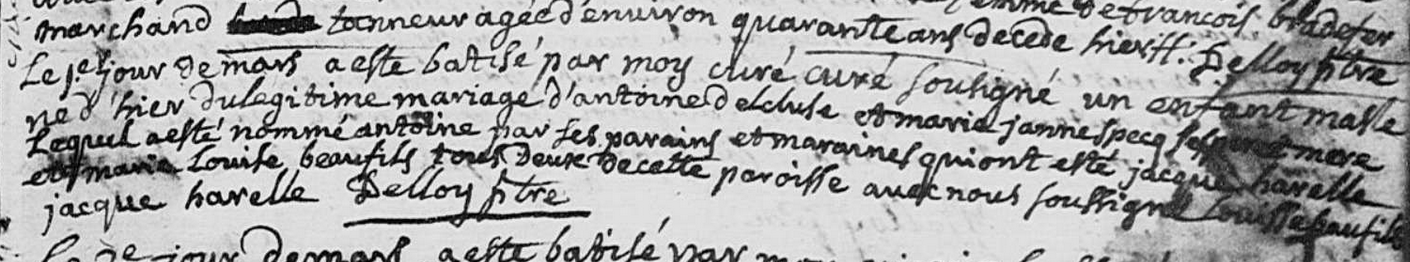 femme de francois bradefer
marchand tanneur agée d'environ quarante ans decede hier ff: Delloy ptre
Le 1er jour de mars a este batisé par moy curé curé souligné un enfant masle
ne d'hier du legitime mariage d'antoine delcluse et marie janne specq ses pere et mere
Lequel a esté nommé antoine par ses parains et maraines qui ont esté jacque havelle
et marie Louise beaufils tous deux de cette paroisse avec nous soussigné Louisse beaufils
jacque havelle Delloy ptre
Le 2e jour de mars a este batisé par moy